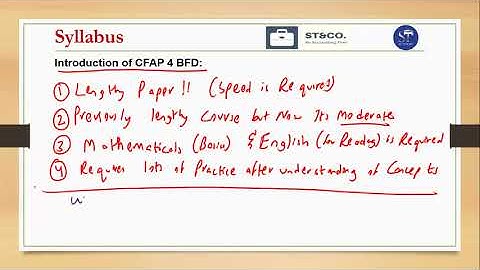 Syllabus
ST&CO.
Introduction of CFAP 4 BFD:
① Lengthy Paper!! (Speed is Required)
② Previously lengthy course but Now its Moderate
③ Mathematicals (Basic) & English (for Reading) is Required
④ Requires lots of Practice after understanding of Concepts